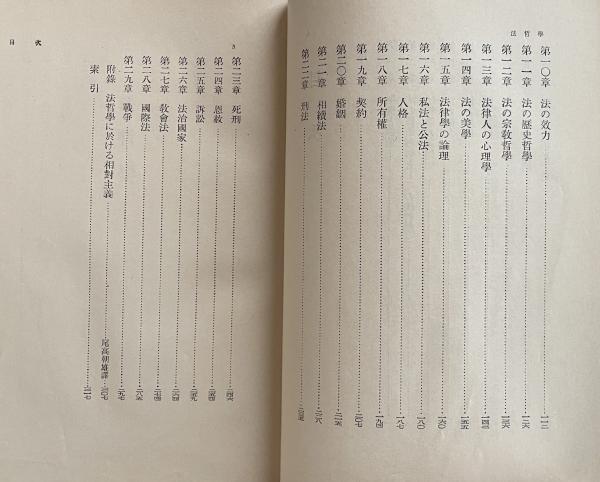 法哲學
第一〇章　法の效力………一一二
第一一章　法の歴史哲學………一二六
第一二章　法の宗敎哲學………一三六
第一三章　法律人の心理學………一四三
第一四章　法の美學………一五五
第一五章　法律學の論理………一六〇
第一六章　私法と公法………一八〇
第一七章　人格………一八七
第一八章　所有權………一九四
第一九章　契約………二〇七
第二〇章　婚姻………二一五
第二一章　相續法………二二八
第二二章　刑法………二三五
目次
3
第二三章　死刑………二四六
第二四章　恩赦………二五四
第二五章　訴訟………二五九
第二六章　法治國家………二六四
第二七章　敎會法………二七四
第二八章　國際法………二八五
第二九章　戰爭………二九七
附錄　法哲學に於ける相對主義………尾高朝雄譯………三〇七
索引………三一七